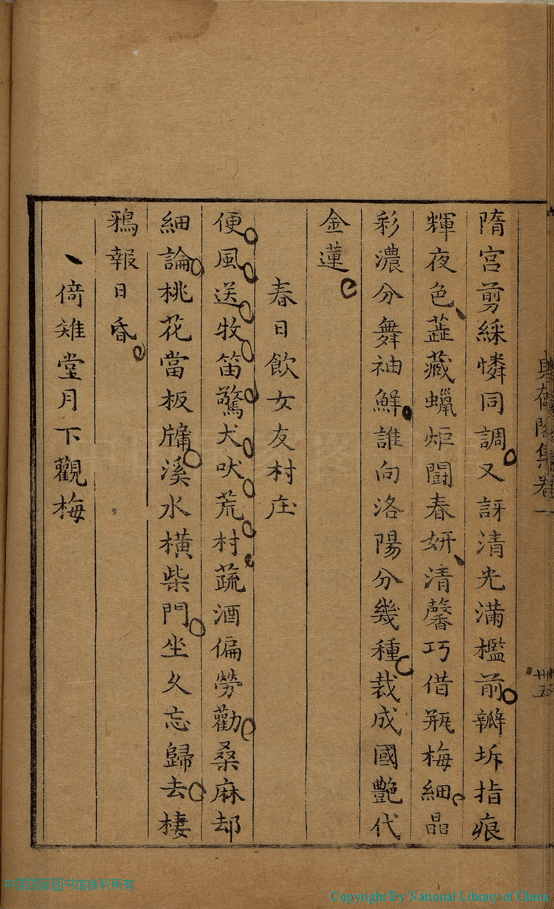 隋宮剪綵憐同調又訝清光滿檻前瓣坼指痕
輝夜色蕋藏蠟炬鬪春妍清馨巧借瓶梅細晶
彩濃分舞袖鮮誰向洛陽分幾種裁成國艷代
金蓮
春日飲女友村庄
便風送牧笛驚犬吠荒村蔬酒偏勞勸桑麻却
細論桃花當板牗溪水橫柴門坐久忘歸去棲
鴉報日昏
倚雉堂月下觀梅
Copyright By National Library of China